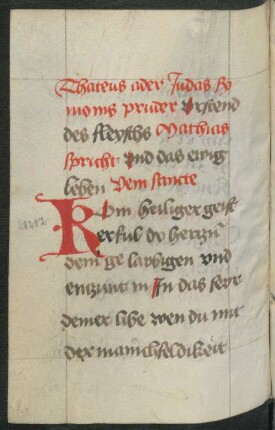 Thateus ader Judas sy
monis pruder Vrstend
des fleyschs Mathias
spricht Vnd das ewig
leben Veni sancte
Kom heiliger geist
erful dy herczn
deinr gelaubigen vnd
enczunt in In das fewr
deiner libe wen du mit
der manichfeldikeit